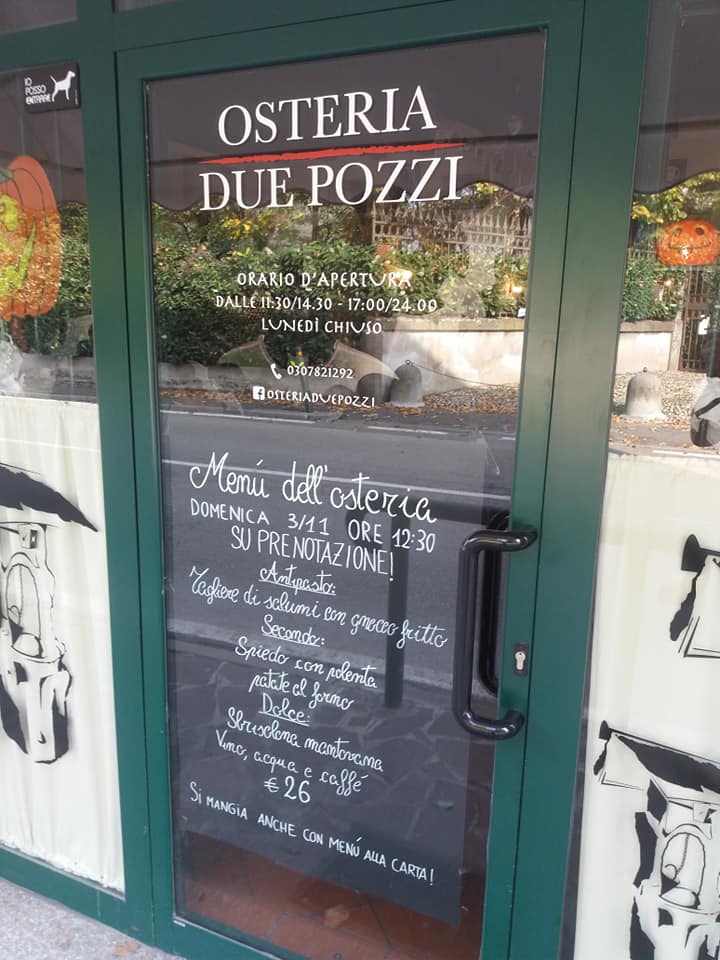 IO
POSSO
ENTRARE
OSTERIA
DUE POZZI
ORARIO D'APERTURA
DALLE 11:30/14.30 - 17:00/24.00
LUNEDÌ CHIUSO
0307821292
OSTERIADUEPOZZI
Menú dell'osteria
DOMENICA 3/11 ORE 12:30
SU PRENOTAZIONE!
Antipasto:
Tagliere di salumi con gnocco fritto
Secondo:
Spiedo con polenta
patate al forno
Dolce:
Sbrisolona mantovana
Vino, acqua e caffé
€ 26
SI MANGIA ANCHE CON MENÚ ALLA CARTA!